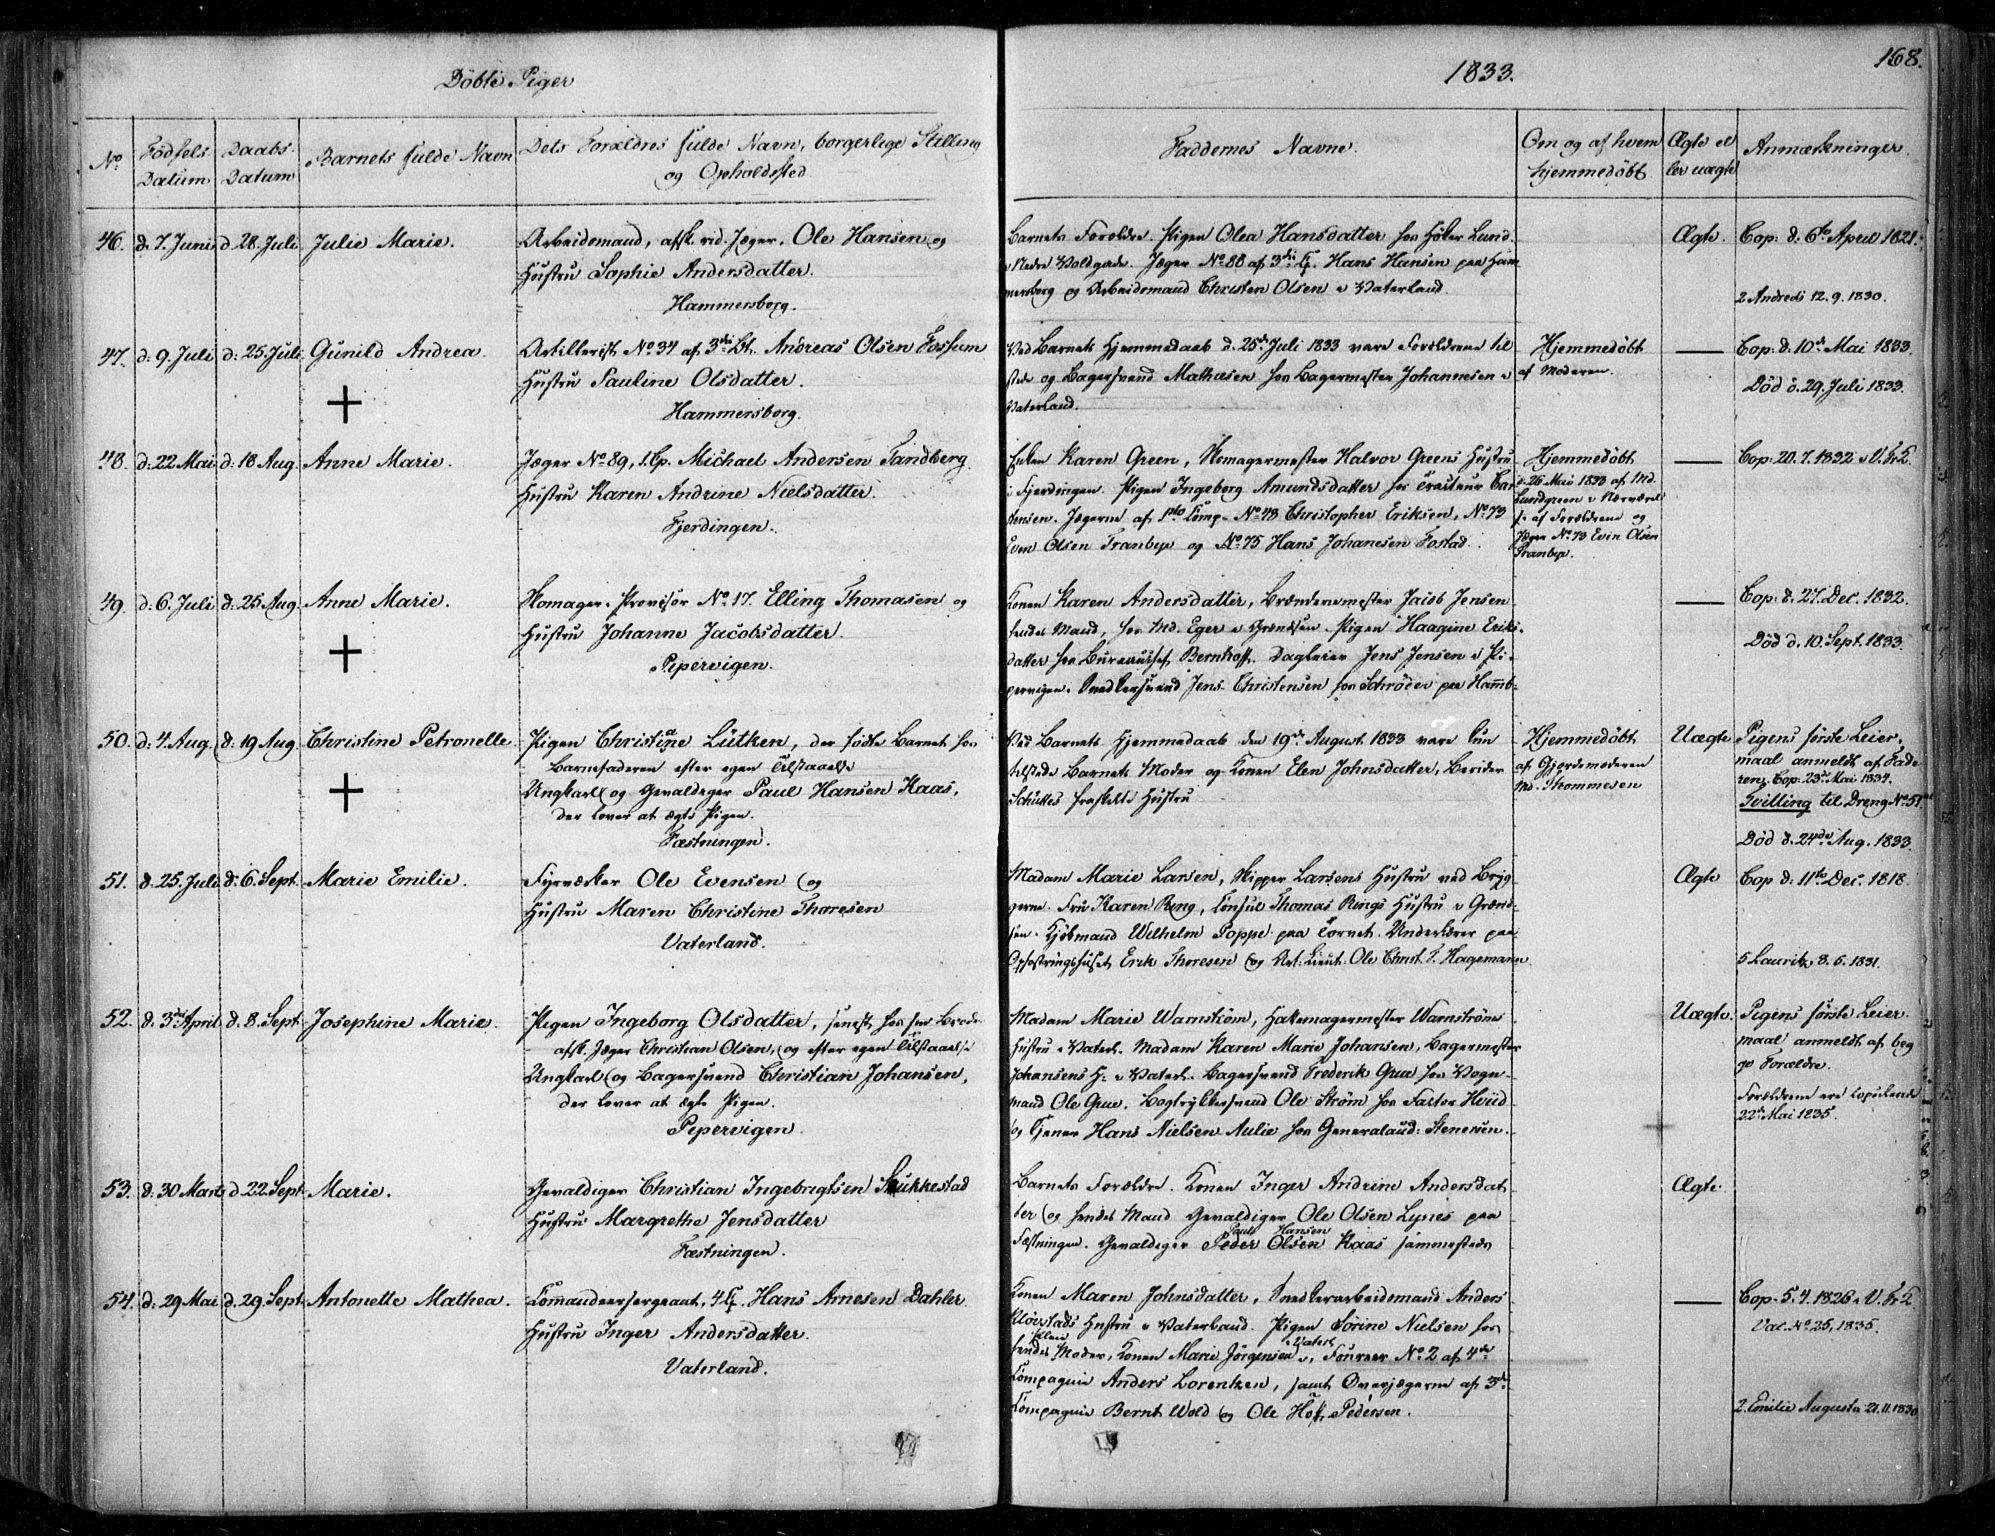 168.
Döbte Piger
1833.
No
Födsels Datum
Daabs Datum
Barnets fulde Navn
Dets Forældres fulde Navn, borgerlige Stilling
og Opholdssted
Faddernes Navne.
Om og af hvem
hjemmedöbt
Ægte el
ler uægte
Anmærkninger.
46. d. 7. Juni d 28. Juli Julie Marie.
Arbeidsmand, afsk. rid. Jæger, Ole Hansen og
Hustru Sophie Andersdatter.
Hammersborg.
Barnets Forældre. Pigen Olea Hansdatter hos Höker Lund
i Nedre Voldgade. Jæger No 88 af 3die C. Hans Hansen paa Ham
mersborg og Arbeidsmand Christen Olsen i Vaterland.
Ægte.
Cop: d. 6te April 1821.
2 Andreas 12. 9. 1830.
47. d: 9. Juli d: 25. Juli Gunild Andrea.
Artillerist No 34 af 3die Bt. Andreas Olsen Fossum
Hustru Pauline Olsdatter.
Hammersborg.
Ved Barnets Hjemmedaab d. 25de Juli 1833 vare Forældrene til
stede og Bagersvend Mathiesen hos Bagermester Johannesen i
Vaterland.
Hjemmedöbt
af Moderen.
Cop: d. 10de Mai 1833.
Död d. 29. Juli 1833.
48. d: 22 Mai d: 18 Aug. Anne Marie.
Jæger No 89, 1. Cp. Michael Andersen Sandberg
Hustru Karen Andrine Nielsdatter.
Fjerdingen.
Enken Karen Green, Skomagermester Halvor Greens Hustru
i Fjerdingen. Pigen Ingeborg Amundsdatter hos Tracteur Car
stensen. Jægerne af 1ste Comp. No 43 Christopher Eriksen, No 73
Even Olsen Tranbye og No 75 Hans Johanesen Fostad.
Hjemmedöbt
d. 26 Mai 1833 af Md.
Lundgreen i Nærværel
se af Forældrene og
Jæger No 73 Even Olsen
Tranbye.
Cop: 20. 7. 1832
49. d: 6. Juli d: 25 Aug. Anne Marie.
Skomager. Provisor No 17. Elling Thomasen og
Hustru Johanne Jacobsdatter.
Pipervigen.
Konen Karen Andersdatter, Brænderemester Jacob Jensen
hendes Mand, hos Md. Eger i Grændsen. Pigen Haagine Eriks-
datter hos Bureauchef Bernhoft. Dagleier Jens Jensen i Pi-
pervigen. Snedkersvend Jens Christensen hos Schröder paa Hamb-
Cop: d. 27. Dec. 1832.
Död d. 10. Sept. 1833.
50. d: 4. Aug. d: 19 Aug Christine Petronelle
Pigen Christine Lütken, der födte Barnet hos
Barnefaderen efter egen Tilstaaelse
Ungkarl og Gevaldiger Paul Hansen Kaas,
der lover at ægte Pigen.
Fæstningen.
Ved Barnets Hjemmedaab den 19de August 1833 vare kun
tilstede Barnets Moder og Konen Elen Johnsdatter, Berider
Schüttes fraskilte Hustru
Hjemmedöbt
af Gjordemoderen
Md. Thommesen
Uægte
Pigens förste Leier-
maal anmeldt af Fade
ren. Cop: 23de Mai 1834.
Tvilling til Dreng No 51
Död d. 24de Aug. 1833.
51. d. 25. Juli d: 6. Sept. Marie Emilie.
Fyrværker Ole Evensen og
Hustru Maren Christine Thoresen
Vaterland.
Madam Marie Larsen, Skipper Larsens Hustru ved Bryg
gerne. Fru Karen Ring, Consul Thomas Rings Hustru i Grænd
sen. Kjöbmand Wilhelm Poppe paa Torvet. Underlærer paa
Opfostringshuset Erik Thoresen og Art: Lieut: Ole Christ. F. Hagemann
Ægte
Cop d: 11te Dec. 1818.
5 Lauritz, 8. 6. 1831.
52. d. 3die April d. 8. Sept. Josephine Marie.
Pigen Ingeborg Olsdatter, senest hos sin Broder
afsk. Jæger Christian Olsen, og efter egen Tilstaaelse
Ungkarl og Bagersvend Christian Johansen,
der lover at ægte Pigen.
Pepervigen.
Madam Marie Warnström, Hattemagermester Warnströms
Hustru i Vaterl. Madam Karen Marie Johansen, Bagermester
Johansens H: i Vaterl. Bagersvend Frederik Grue hos Vogn-
mand Ole Grue. Bogtrykkersvend Ole Ström hos Factor Hviid
og Tjener Hans Nielsen Aulie hos Generalaud: Stenersen.
Uægte.
Pigens förste Leier-
maal anmeldt af beg
ge Forældre.
Forældrene ere copulerede
22de Mai 1835.
53. d: 30 Marts d 22 Sept. Marie.
Gevaldiger Christian Ingebrigtsen Stukkestad
Hustru Margrethe Jensdatter
Fæstningen.
Barnets Forældre. Konen Inger Andrine Andersdat
ter og hendes Mand Gevaldiger Ole Olsen Lynes paa
Paul Hansen
Fæstningen. Gevaldiger Peder Olsen Kaas sammesteds
Ægte.
54. d: 29 Mai d. 29. Sept. Antonette Mathea.
Commandeersergeant, 4 C. Hans Arnesen Dahler
Hustru Inger Andersdatter.
Vaterland.
Konen Maren Johnsdatter, Snedkerarbeidsmand Anders
Hustru i Vaterland. Pigen Sörine Nielsen hos
hendes Moder, Konen Marie Jörgensen i Vaterl., Foureer No 2 af 4de
Compagnie Anders Lorentzen, samt Overjægerne af 3die
Compagnie Bernt Wold og Ole Höf Pedersen.
Cop. 5. 4. 1826
Vac. No 25, 1835.
2. Emilie Augusta 21. 11. 1830